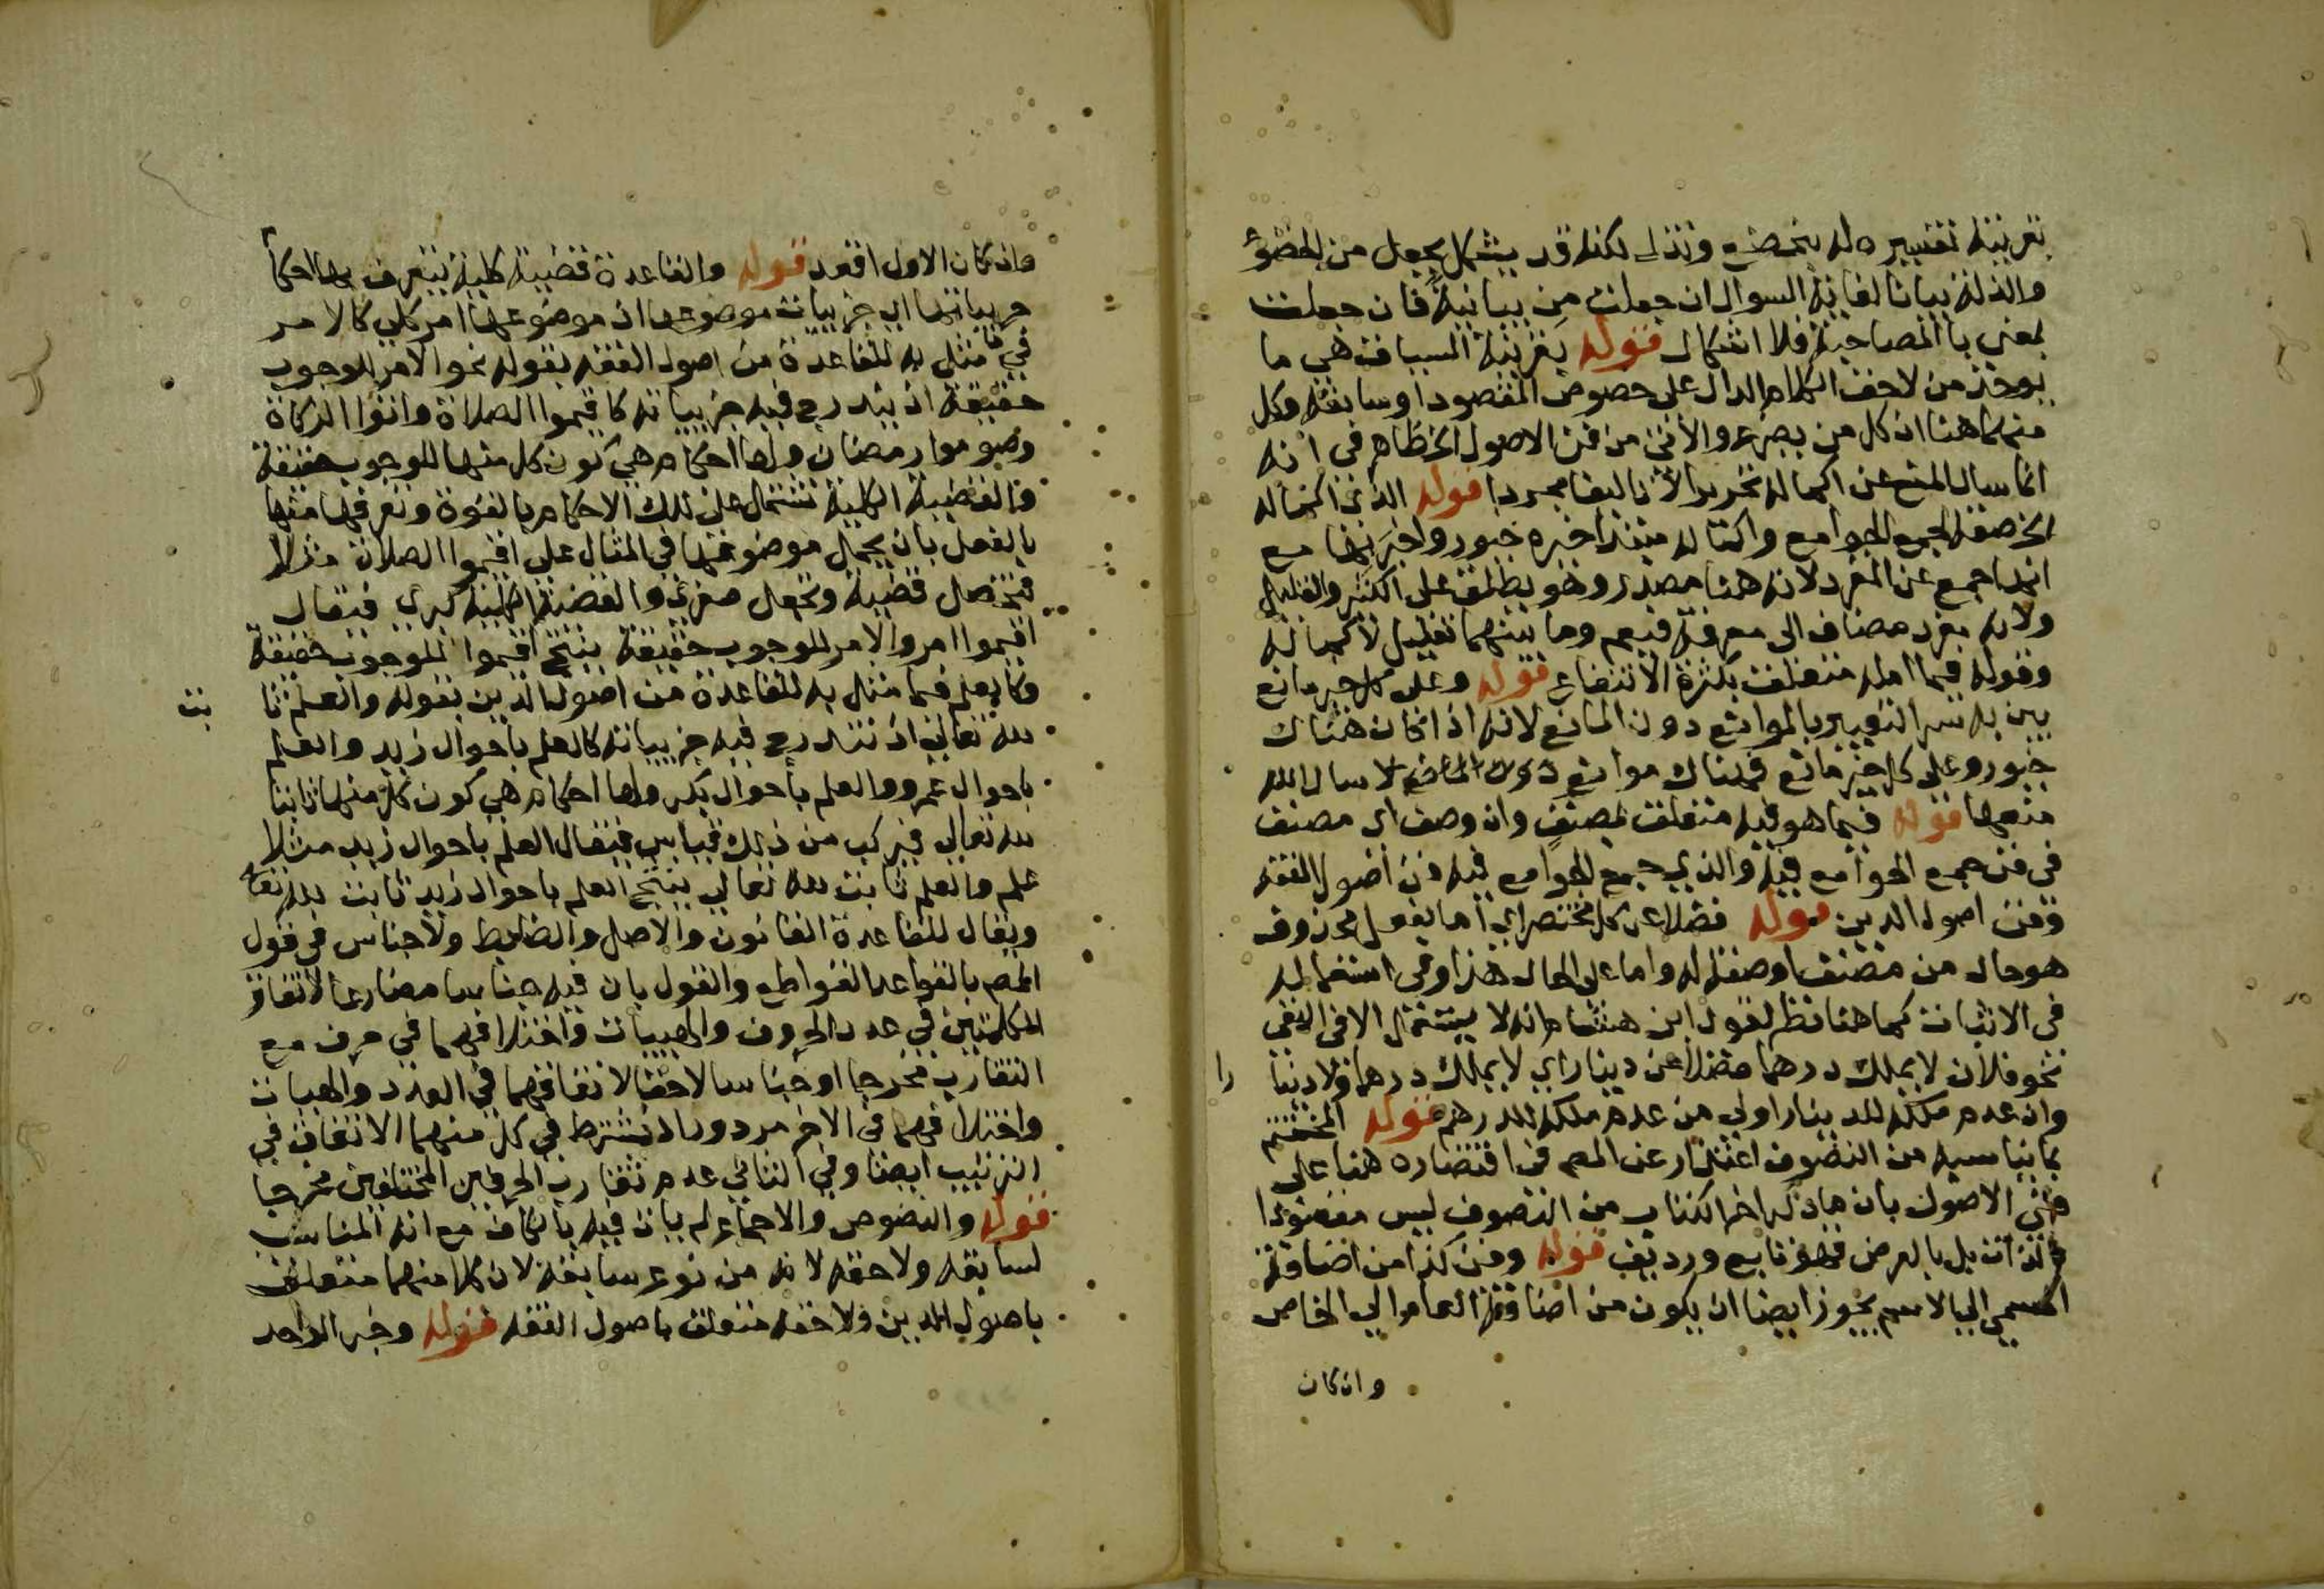 بقرينة تفسيره له بنخضع ونذل لكنه قد يشكل بجعل من الخضوع
والذلة بيانا لغاية السوال ان جعلت من بيانية فان جعلت
بمعنى باالمصاحبة فلا اشكال قوله بقرينة السياق هي ما
يوخذ من لاحق الكلام الدال على خصوص المقصود او سابقه وكل
منهما هنا ان كل من يصرع والاتى من فن الاصول الخ ظاهر في انه
انما سال المنع عن اكمال تحرير الا تاليفا مجردا قوله الذي اكماله
الخ صفة لجمع الجوامع واكماله مبتدا خبره خيور واخبر بها مع
انها جمع عن المفرد لانه هنا مصدر وهو يطلق على الكثير والقليل
ولانه مفرد مضاف الى معرفة فيعم وما بينهما تعليل لاكماله
وقوله فيما امله متعلق بكثرة الانتفاع قوله وعلى كل خير مانع
بين به سر التعبير بالموانع دون المانع لانه اذا كان هناك
خيور وعلى كل خير مانع فهناك موانع لا سال الله
منعها قوله فيما هو فيه متعلق بمصنف وان وصف اي مصنف
في فن جمع الجوامع فيه والذي جمع الجوامع فيه فن اصول الفقه
وفن اصول الدين قوله فضلا عن كل مختصر اي اما بفعل محذوف
هو حال من مصنف او صفة له واما على الحال هذا وفي استعماله
في الاثبات كما هنا نظر لقول ابن هشام انه لا يستعمل الا في النفي
نحو فلان لا يملك درهما فضلا عن دينار اي لا يملك درهما ولا دينا را
وان عدم ملكه للدينار اولى من عدم ملكه للدرهم قوله المختتم
بما يناسبه من التصوف اعتذار عن المص في اقتصاره هنا على
فني الاصول بان ما ذكره اخر الكتاب من التصوف ليس مقصودا
بالذات بل بالعرض فهو تابع ورديف قوله وفن كذا من اضافة
المسمى الى الاسم يجوز ايضا ان يكون من اضافة العام الى الخاص
وان كان
وان كان الاول اقعد قوله والقاعدة قضية كلية يتعرف بها احكام
جزيياتها اي جزييات موضوعها اذ موضوعها امر كلي كالامر
في ما مثل به للقاعدة من اصول الفقه بقوله نحو الامر للوجوب
حقيقة اذ يندرج فيه جزيياته كاقيموا الصلاة واتوا الزكاة
وصوموا رمضان ولها احكام هي كون كل منها للوجوب حقيقة
فالقضية الكلية تشتمل على تلك الاحكام بالقوة وتعرفها منها
بالفعل بان يحمل موضوعها في المثال على اقيموا الصلاة مثلا
فتحصل قضية وتجعل صغرى والقضية الكلية كبرى فيقال
اقيموا امر والامر للوجوب حقيقة ينتج اقيموا للوجوب حقيقة
وكالعلم فيما مثل به للقاعدة من اصول الدين بقوله والعلم ثا بت
لله تعالى اذ تندرج فيه جزيياته كالعلم باحوال زيد والعلم
باحوال عمرو والعلم باحوال بكر ولها احكام هي كون كل منها ثابتا
لله تعالى فيركب من ذلك قياس فيقال العلم باحوال زيد مثلا
علم والعلم ثابت لله تعالى ينتج العلم باحوال زيد ثابت لله تعا
ويقال للقاعدة القانون والاصل والضابط ولا جناس في قول
المص بالقواعد القواطع والقول بان فيه جناسا مضارعا لاتفاق
الكلمتين في عدد الحروف والهييات واختلافهما في حرف مع
التقارب مخرجا او جناسا لاحقا لاتفاقهما في العدد والهيات
واختلافهما في الاخر مردود اذ يشترط في كل منهما الاتفاق في
الترتيب ايضا وفي الثاني عدم تقارب الحرفين المختلفين مخرجا
قوله والنصوص والاجماع لم يات فيه بالكاف مع انه المناسب
لسابقه ولاحقه لانه من نوع سابقه لان كلا منهما متعلق
باصول الدين ولاحقه متعلق باصول الفقه قوله وخبر الواحد